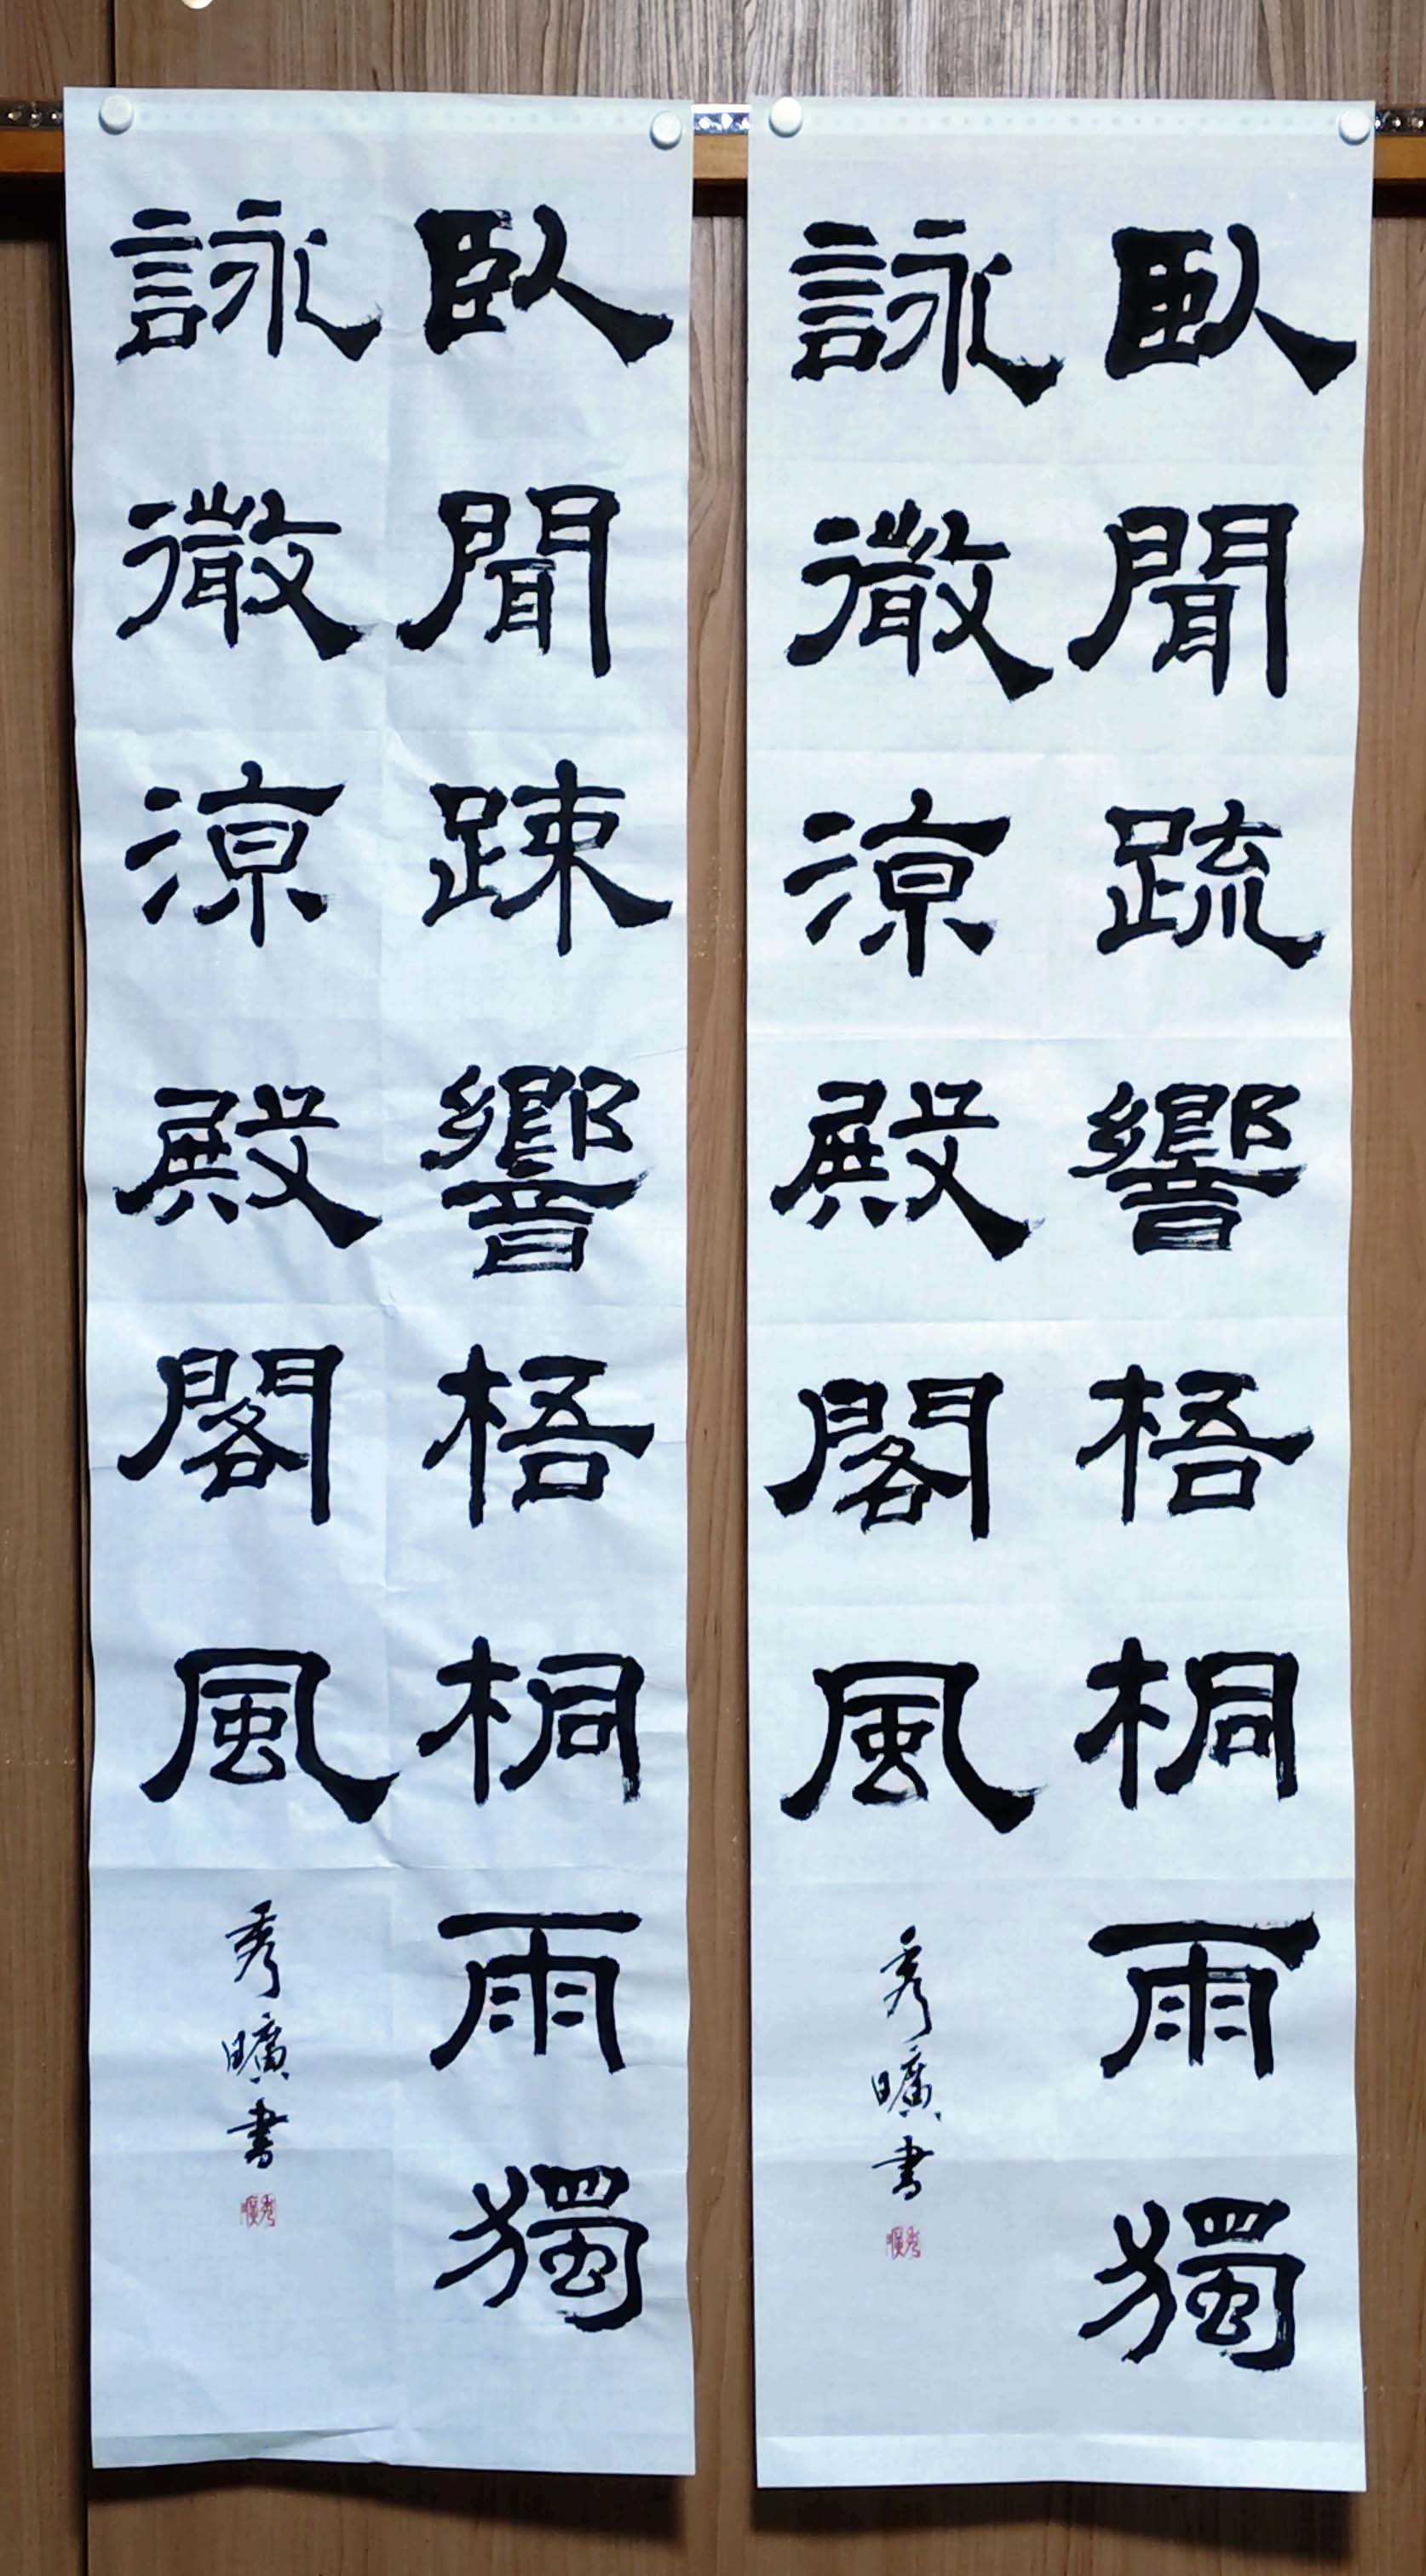 臥聞疏響梧桐雨獨
詠微涼殿閣風
秀曠書
秀曠
臥聞踈響梧桐雨獨
詠微涼殿閣風
秀曠書
秀曠